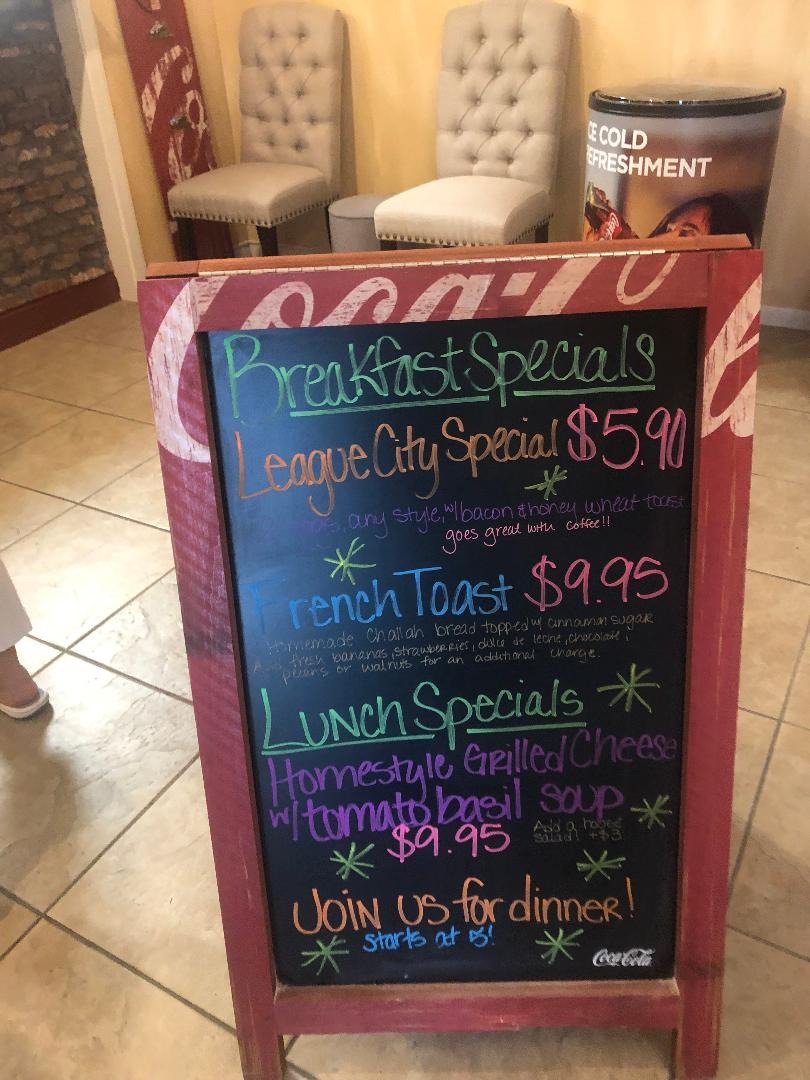 CE COLD
EFRESHMENT
Coca-Co
Breakfast Specials
League City Special $5.90
any style, w/ bacon & honey wheat toast
goes great with coffee!!
French Toast $9.95
Homemade challah bread topped w/ cinnamon sugar
Add fresh bananas, strawberries, dulce de leche, chocolate,
pecans or walnuts for an additional charge.
Lunch Specials
Homestyle Grilled Cheese
w/ tomato basil soup
$9.95
Add a house
salad! +$3
Join us for dinner!
starts at 5!
Coca-Cola